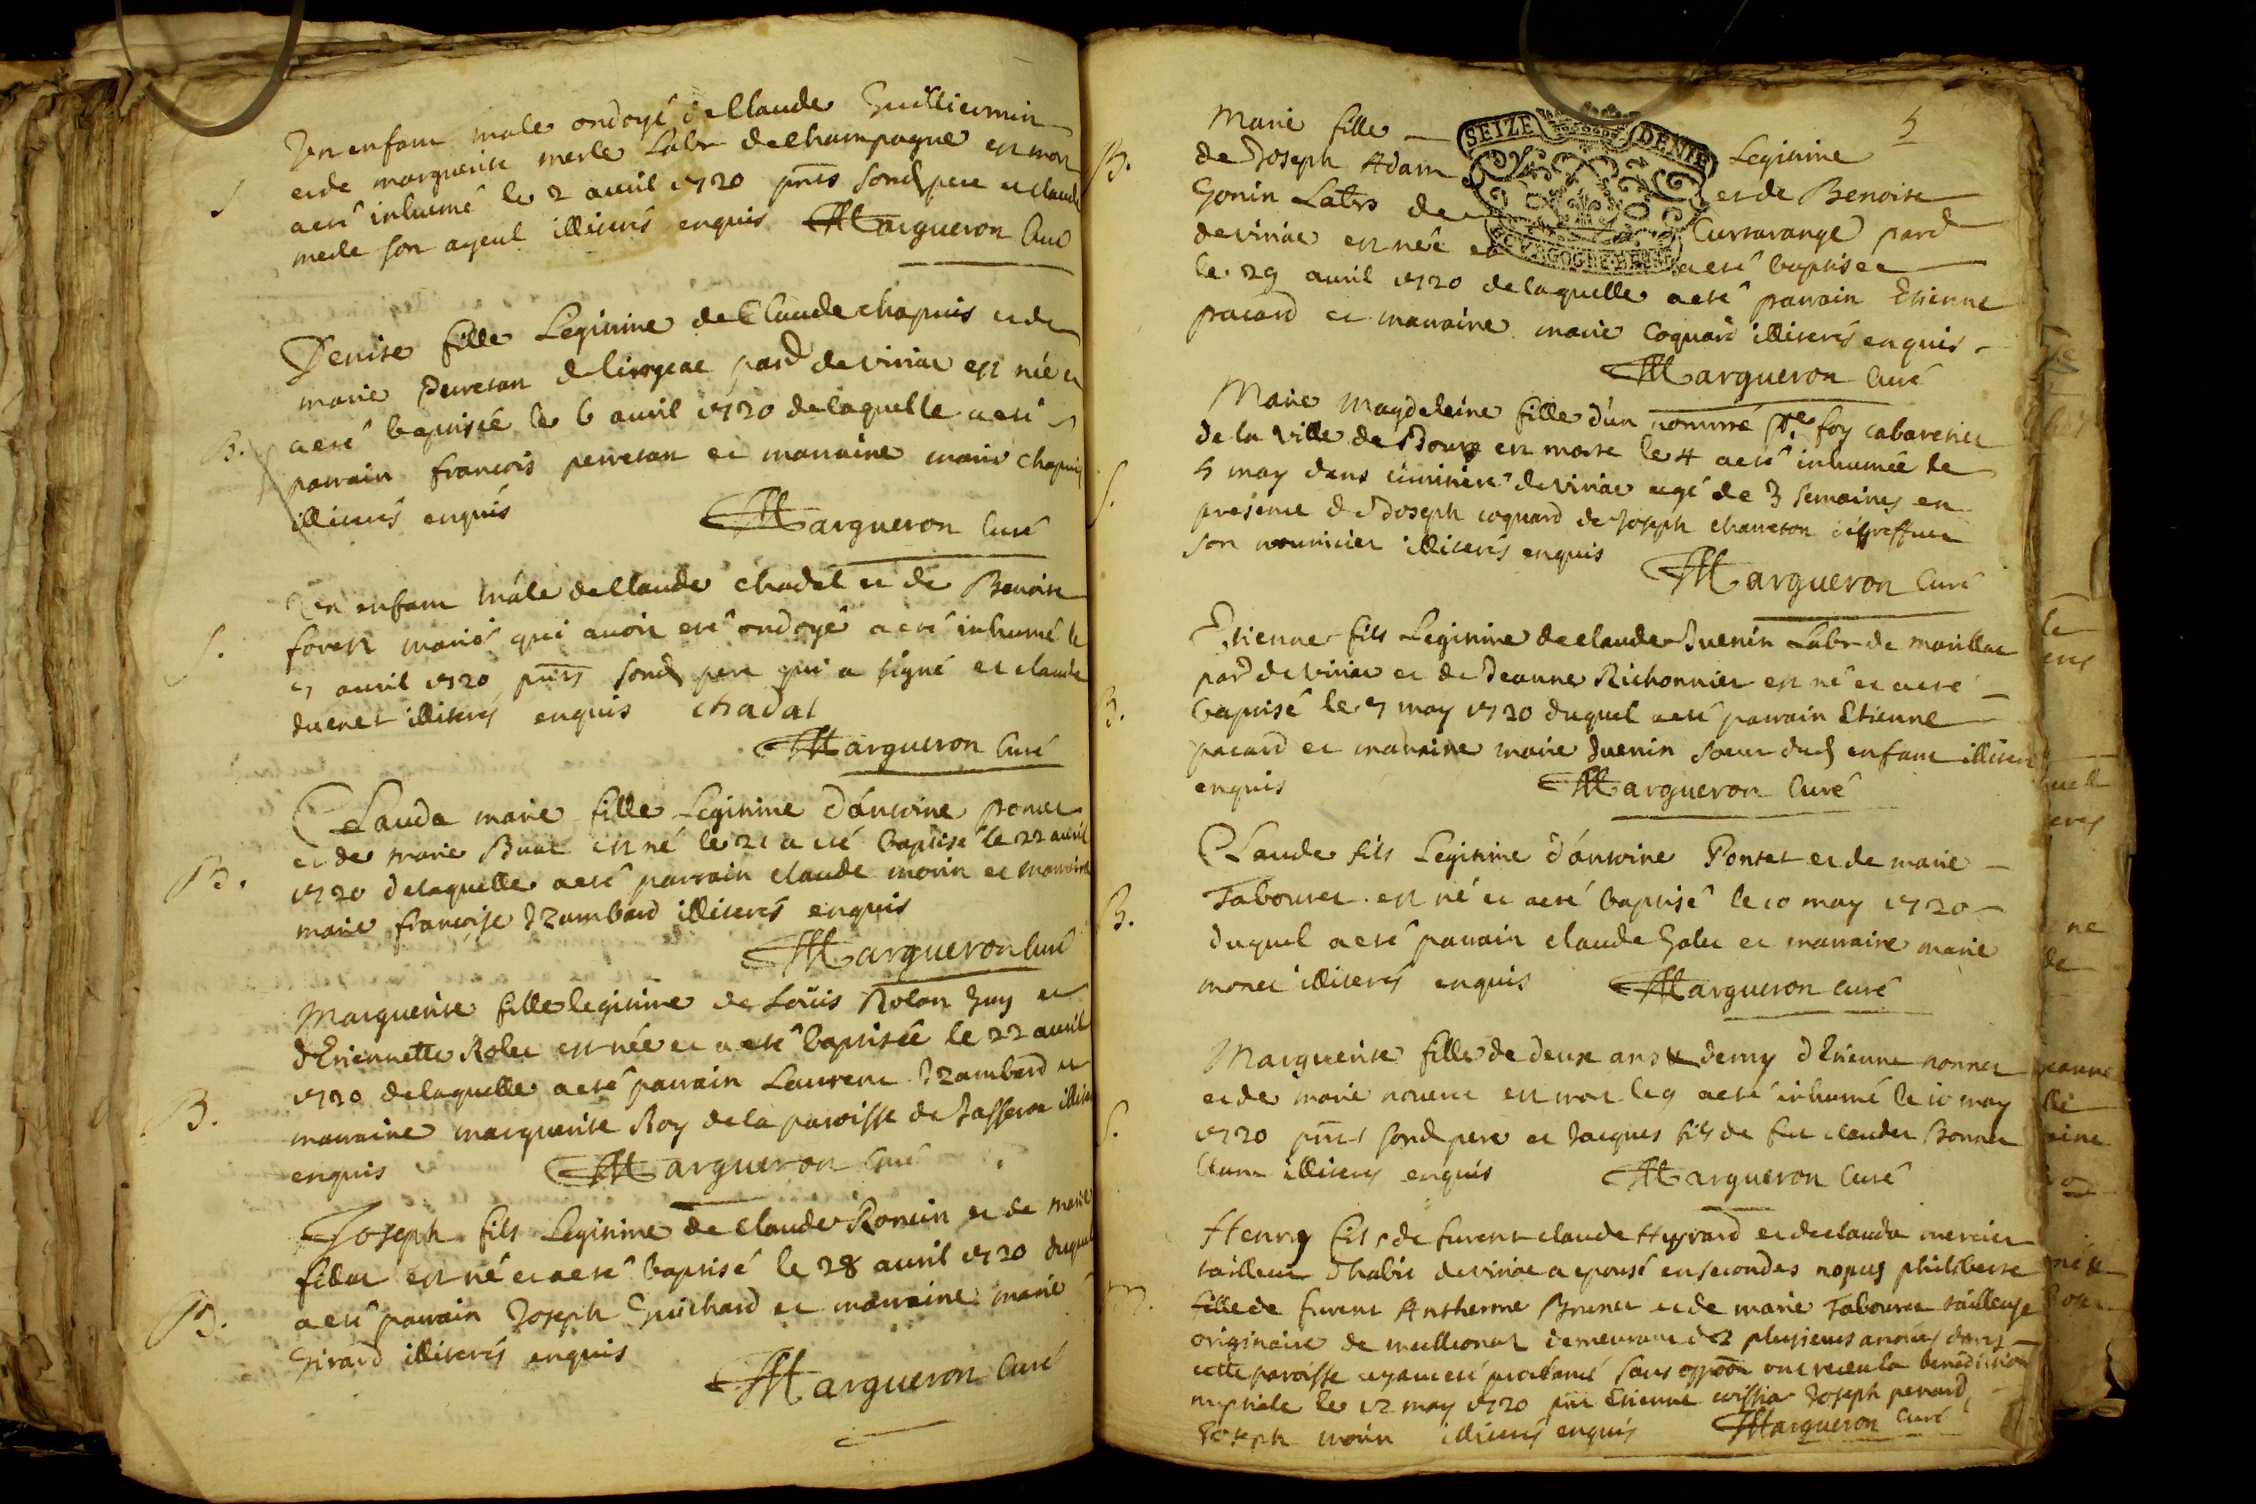 S
Un enfant male ondoyé de Claude Guilliermin
et de marguerite merle Labr de champagne est mort
a eté inhumé le 2 avril 1720 pnts sond pere et claude
merle son ayeul illiterés enquis Margueron Curé
B.
Denise fille Legitime de Claude chapuis et de
marie perretan de parr de viriac est née et
a eté baptisée le 6 avril 1720 de laquelle a eté
parrain francois perretan et marraine marie chapuis
illiterés enquis Margueron Curé
S.
Un enfant mâle de Claude chadal et de Benoite
forest marié qui avoit eté ondoyé a eté inhumé le
7 avril 1720 pnts sond pere qui a signé et claude
duenet illiterés enquis chadal
Margueron Curé
B.
Clauda marie fille Legitime d'antoine poncet
et de marie Buat est né le 21 a eté baptisé le 22 avril
1720 de laquelle a eté parrain claude morin et marraine
marie francoise Izambard illiterés enquis
Margueron Curé
B.
Marguerite fille legitime de Loüis Rolan Guy et
d'Etiennette Rolet est née et a eté baptisée le 22 avril
1720 de laquelle a eté parrain Laurent Izambard et
marraine marguerite Roy de la paroisse de Jasseron illiterés
enquis Margueron Curé
B.
Joseph fils Legitime de Claude Roncin et de marie
est né et a eté baptisé le 28 avril 1720 duquel
a eté parrain Joseph Guichard et marraine marie
Girard illiterés enquis
Margueron Curé
5
SEIZE DENIE
B.
Marie fille Legitime
de Joseph Adam et de Benoite
Gonin Labrs de Curtarange parr
de viriac est née et a eté baptisée
le 29 avril 1720 de laquelle a eté parrain Etienne
pacard et marraine marie Coquard illiterés enquis
Margueron Curé
S.
Marie Magdeleine fille d'un nommé foy cabaretier
de la ville de Bourg est morte le 4 a eté inhumée le
5 may dans cimitiere de viriac agé de 3 semaines en
presence de Joseph coquard de Joseph chaneton
son nourricier illiterés enquis
Margueron Curé
B.
Etienne fils Legitime de claude Juenin Labr de marillac
parr de viriac et de Jeanne Richonnier est né et a eté
baptisé le 7 may 1720 duquel a eté parrain Etienne
pacard et marraine marie Juenin soeur dud enfant illiterés
enquis Margueron Curé
B.
Claude fils Legitime d'antoine Ponset et de marie
Tabouret est né et a eté baptisé le 10 may 1720
duquel a eté parrain claude Galet et marraine marie
monet illiterés enquis Margueron Curé
S.
Marguerite fille de deux ans et demy d'Etienne
et de marie est mort le 9 a eté inhumé le 10 may
1720 pnts sond pere et Jacques fils de feu claude Bonnet
illiterés enquis Margueron Curé
m.
Henry fils de furent claude Hyvrard et de clauda mercier
tailleur d'habit de viriac a epousé en secondes nopces philiberte
fille de furent Antherme Brunet et de marie Tabouret tailleuse
originaire de demeurant dez plusieurs années dans
cette paroisse ayant eté proclamé sans oppõon ont receu la benediction
nuptiale le 12 may 1720 pnt Etienne Joseph perrard
Joseph morin illiterés enquis Margueron Curé